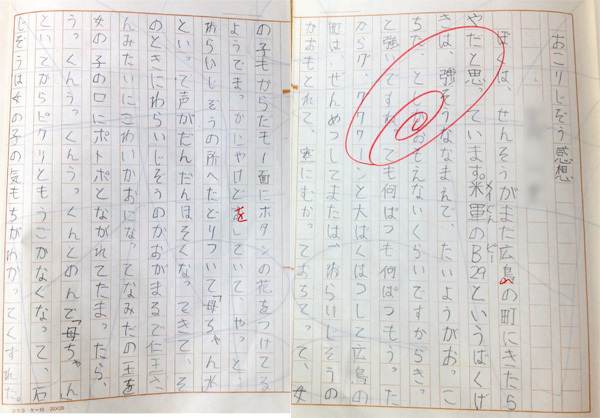 おこりじぞう感想
ぼくは、せんそうがまた広島の町にきたら
やだと思っています。米軍のB29というばくげ
きは、強そうななまえで、たいようがおっこ
ちた、としかおもえないくらいですからきっ
と強いですね。でも何ぱつも何ぱつもうった
からグァグァグァーンと大ばくはつして広島の
町は、ぜんめつしてまたは、わらいじぞうの
かおもとれて、空にむかっておちてって、女
の子もからだも一面にボタンの花をつけてる
ようでまっかにやけどをしていて、やっと、
わらいじぞうの所へたどりついて「母ちゃん水
といって声がだんだんほそくなってきて、そ
のときにわらいじぞうのかおがまるで仁王さ
んみたいにこわいかおになってなみだの玉を
女の子の口にポトポとながれてたまったら、
うっくんうっくんうっくんとのんで「母ちゃん
といってからピクリともうごかなくなって、石
じぞうは女の子の気もちがわかってくずれた。